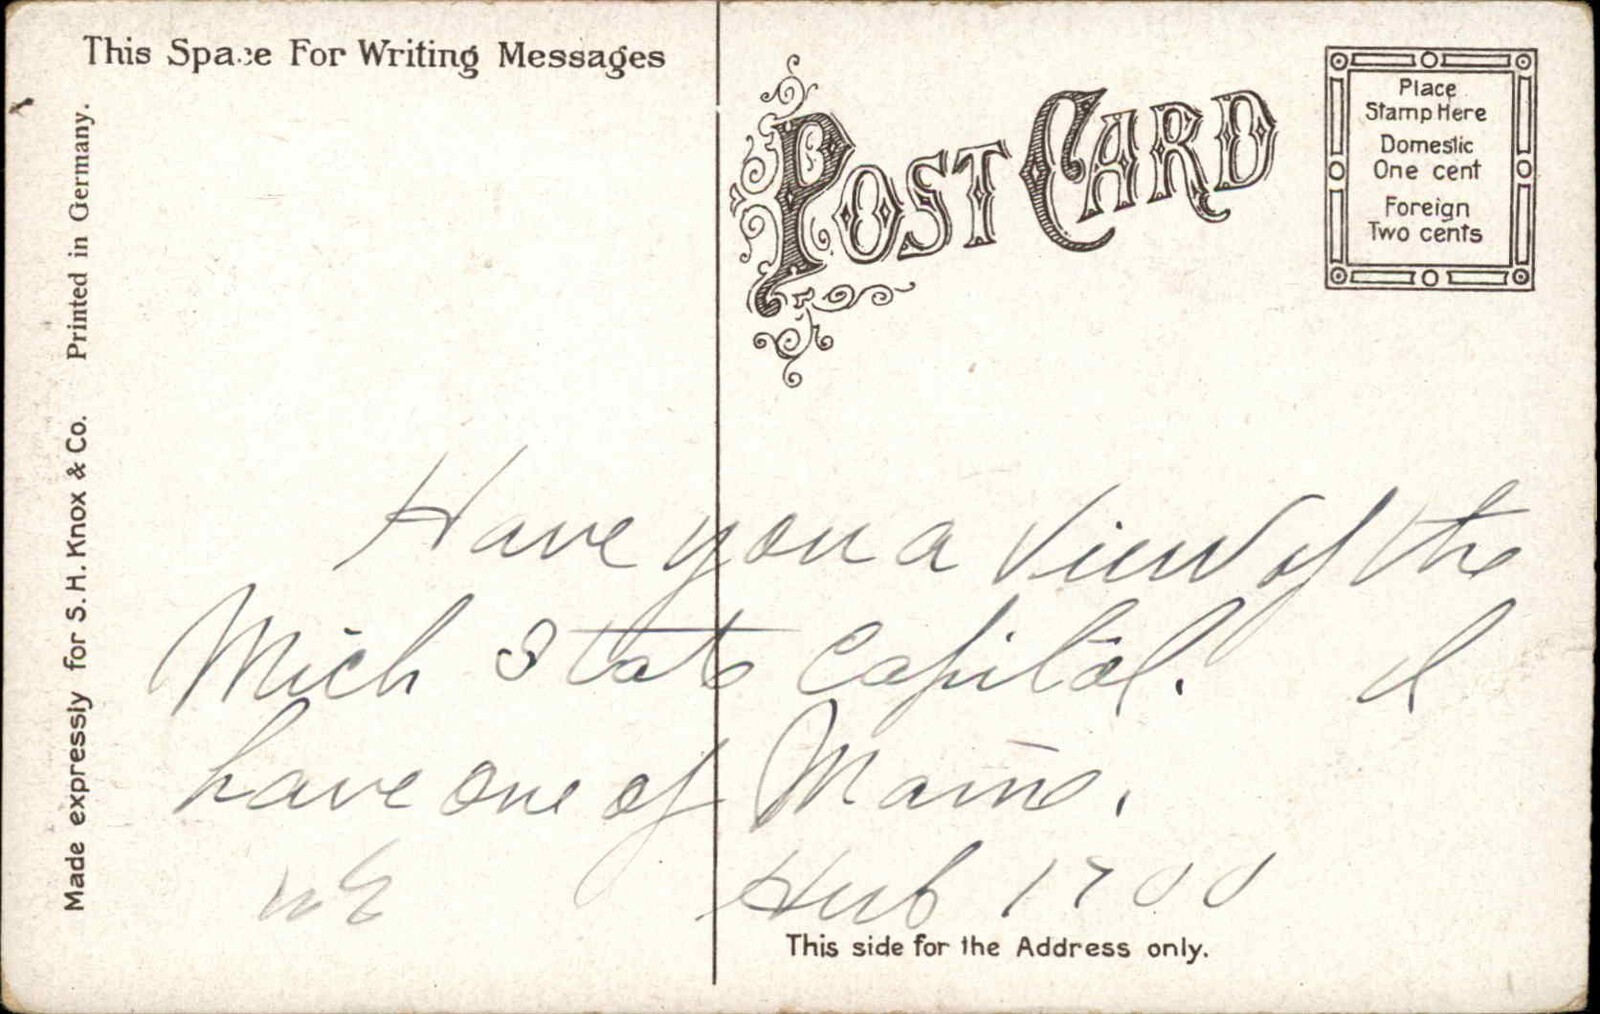 This Space For Writing Messages
POST CARD
Place
Stamp Here
Domestic
One cent
Foreign
Two cents
Made expressly for S. H. Knox & Co. Printed in Germany.
Have you a View of the
Mich State Capital. I
have one of Maine.
Hub 1700
This side for the Address only.